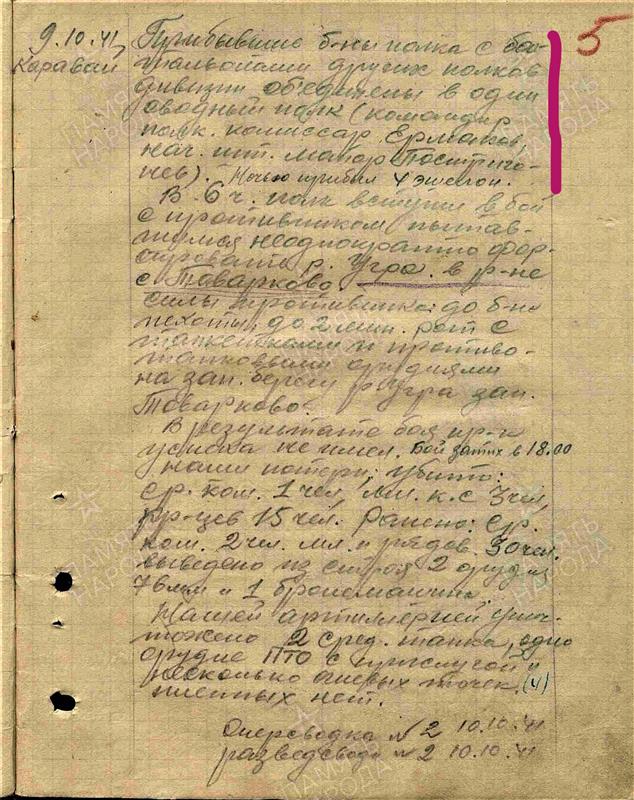 5
9.10.41,
Каравай
Прибывшие б-ны полка с ба-
тальонами других полков
дивизии объединены в один
сводный полк (командир
полк. комиссар Ермаков,
нач. шт. майор Постриго-
нев). Ночью прибыл 4 эшелон.
В 6 ч. полк вступил в бой
с противником пытав-
шимся неоднократно фор-
сировать р. Угра в р-не
с Товарково
Силы противника: до б-на
пехоты, до 2 мин. рот с
танкетками и противо-
танковыми орудиями
на зап. берегу р Угра зап.
Товарково.
В результате боя пр-к
успеха не имел. Бой затих в 18.00
Наши потери: убито:
ср. ком. 1 чел, мл. к.с 3 чел,
кр-цев 15 чел. Ранено: ср.
ком. 2 чел. мл. и рядов. 30 чел.
выведено из строя 2 орудия
76 мм и 1 бронемашина.
Нашей артиллерией унич-
тожено 2 сред. танка, одно
орудие ПТО с прислугой и
несколько огневых точек. (4)
пленных нет.
Оперсводка № 2 10.10.41
разведсводк № 2 10.10.41
ПАМЯТЬ
НАРОДА